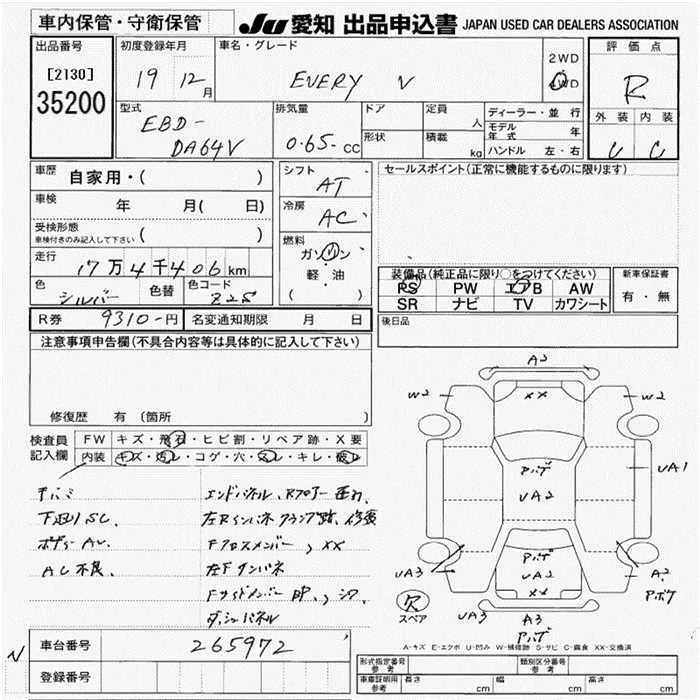 車内保管・守衛保管 JU 愛知 出品申込書 JAPAN USED CAR DEALERS ASSOCIATION
出品番号 初度登録年月 車名・グレード 2WD 評価点
[2130] 19 12月 EVERY V 4WD R
35200 型式 排気量 ドア 定員 人 ディーラー・並行 外装 内装
EBD- モデル年式 年
DA64V 0.65-cc 形状 積載 kg ハンドル 左・右 C
車歴 自家用・( ) シフト AT セールスポイント(正常に機能するものに限ります)
車検 年 月( 日) 冷房 AC
受検形態 ( )
車検付きのみ記入して下さい
走行 17万4千406km 燃料 ガソリン 装備品(純正品に限り○をつけてください) 新車保証書
色 シルバー 色替 色コード Z2S 軽・油 PS PW エアB AW 有・無
( ) SR ナビ TV カワシート
R券 9310-円 名変通知期限 月 日 後日品
注意事項申告欄(不具合内容等は具体的に記入して下さい)
修復歴 有(箇所
検査員 FW キズ・飛石・ヒビ割・リペア跡・X要
記入欄 内装 キズ・汚レ・コゲ・穴・スレ・キレ・破レ
A2
W2 XX W2
Pバゲ
UA2 UA1
Pバゲ
UA3 UA2 A2
XX
R UA3 A3
スペア
下廻りSC. 左Rインパネ クランプ跡、
ボディーAU. Fクロスメンバー、XX
AC不良. 左Fインパネ
A-キズ E-エクボ U-凹み W-補修跡 S-サビ C-腐食 XX-交換済
車台番号 265972 形式指定番号 参考 類別区分番号 参考
登録番号 車庫証明用 参考 長さ cm 幅 cm 高さ cm